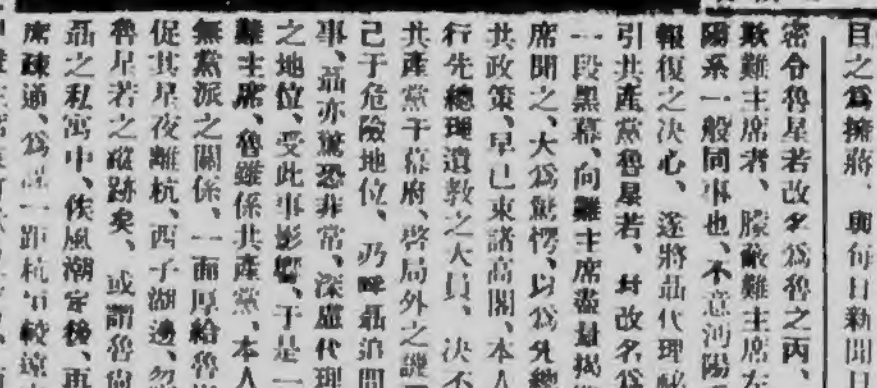 目之爲擠將、與每日新聞日
密令魯星若改名爲魯之丙、
欺難主席者、朦蔽難主席左
陽系一般同事也、不意河陽
報復之决心、遂將聶代理
引共產黨魯星若、幷改名爲
一段黑幕、向難主席盡量揭
席聞之、大爲驚愕、以爲先總
共政策、早已束諸高閣、本人
行先總理遺敎之大員、决不
共產黨于幕府、啓局外之
己于危險地位、乃呼聶追問
事、聶亦驚恐非常、深慮代理
之地位、受此事影響、于是一
難主席、魯雖係共產黨、本人
無黨派之關係、一面厚給魯
促其星夜離杭、西子湖邊、忽
魯星若之蹤跡矣、或謂魯尙
聶之私寓中、俟風潮定後、再
席疎通、爲謀一距杭較遠